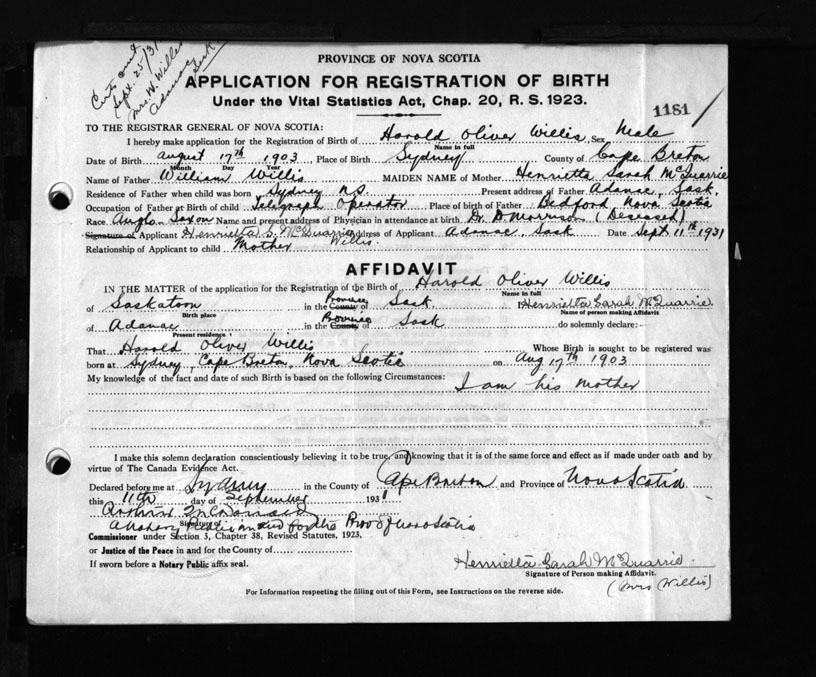 Certs sent
Sept. 25/31
Mrs. W. Willis
Adanac
Sask
PROVINCE OF NOVA SCOTIA
APPLICATION FOR REGISTRATION OF BIRTH
Under the Vital Statistics Act, Chap. 20, R. S. 1923.
1181
TO THE REGISTRAR GENERAL OF NOVA SCOTIA:
I hereby make application for the Registration of Birth of Harold Oliver Willis Sex Male
Name in full
Date of Birth August 17th 1903 Place of Birth Sydney County of Cape Breton
Month Day Year
Name of Father William Willis MAIDEN NAME of Mother Henrietta Sarah McQuarrie
Residence of Father when child was born Sydney N.S. Present address of Father Adanac, Sask.
Occupation of Father at Birth of child Telegraph Operator Place of birth of Father Bedford, Nova Scotia
Race Anglo Saxon Name and present address of Physician in attendance at birth Dr. D Morrison (Deceased)
Signature of Applicant Henrietta S. McQuarrie Willis. Address of Applicant Adanac, Sask Date Sept 11th 1931
Relationship of Applicant to child Mother
AFFIDAVIT
IN THE MATTER of the application for the Registration of the Birth of Harold Oliver Willis
Name in full
of Saskatoon in the County Province of Sask. I Henrietta Sarah McQuarrie
Birth place Name of Person making Affidavit
of Adanac in the County Province of Sask do solemnly declare:-
Present residence
That Harold Oliver Willis Whose Birth is sought to be registered was
born at Sydney, Cape Breton, Nova Scotia on Aug 17th 1903
My knowledge of the fact and date of such Birth is based on the following Circumstances: I am his mother
I make this solemn declaration conscientiously believing it to be true, and knowing that it is of the same force and effect as if made under oath and by
virtue of The Canada Evidence Act.
Declared before me at Sydney in the County of Cape Breton and Province of Nova Scotia
this 11th day of September 1931
A Notary Public in and for the Prov of Nova Scotia
Signature of
Commissioner under Section 3, Chapter 38, Revised Statutes, 1923,
or Justice of the Peace in and for the County of
If sworn before a Notary Public affix seal.
Henrietta Sarah McQuarrie
Signature of Person making Affidavit.
(Mrs Willis)
For Information respecting the filling out of this Form, see Instructions on the reverse side.